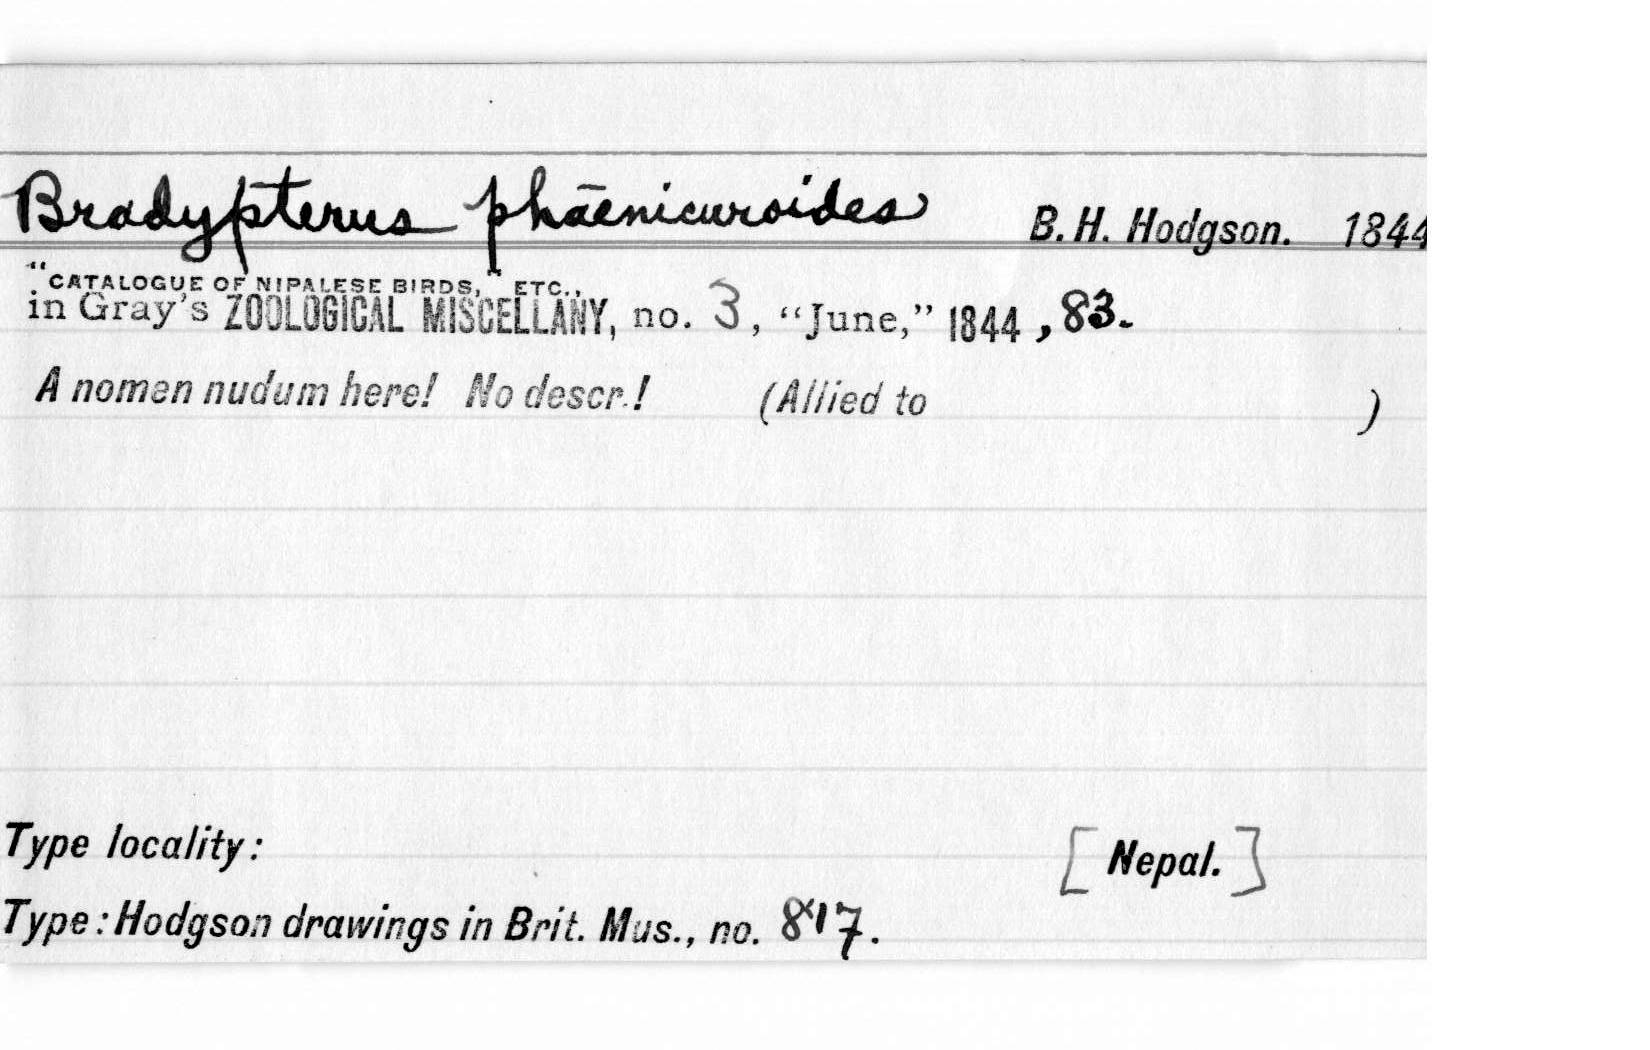 Bradypterus phāenicuroides B. H. Hodgson. 1844
"CATALOGUE OF NIPALESE BIRDS," ETC.,
in Gray's ZOOLOGICAL MISCELLANY, no. 3, "June," 1844, 83.
A nomen nudum here! No descr.! (Allied to )
Type locality: [Nepal.]
Type: Hodgson drawings in Brit. Mus., no. 817.